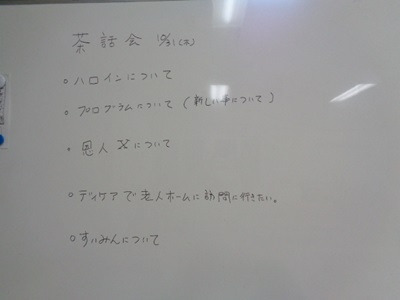 茶話会 10/31(木)
○ハロインについて
○プログラムについて(新しい事について)
○恩人Xについて
○ディケアで老人ホームに訪問に行きたい。
○すいみんについて